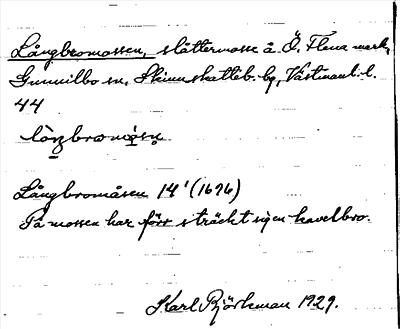 Långbromossen, slåttermosse å Ö. Flena mark,
Gunnilbo sn, Skinnskatteb. bg, Västmanl. l.
44
Långbromåsen 14' (1676)
På mossen har förr sträckt sig en kavelbro.
Karl Björkman 1929.